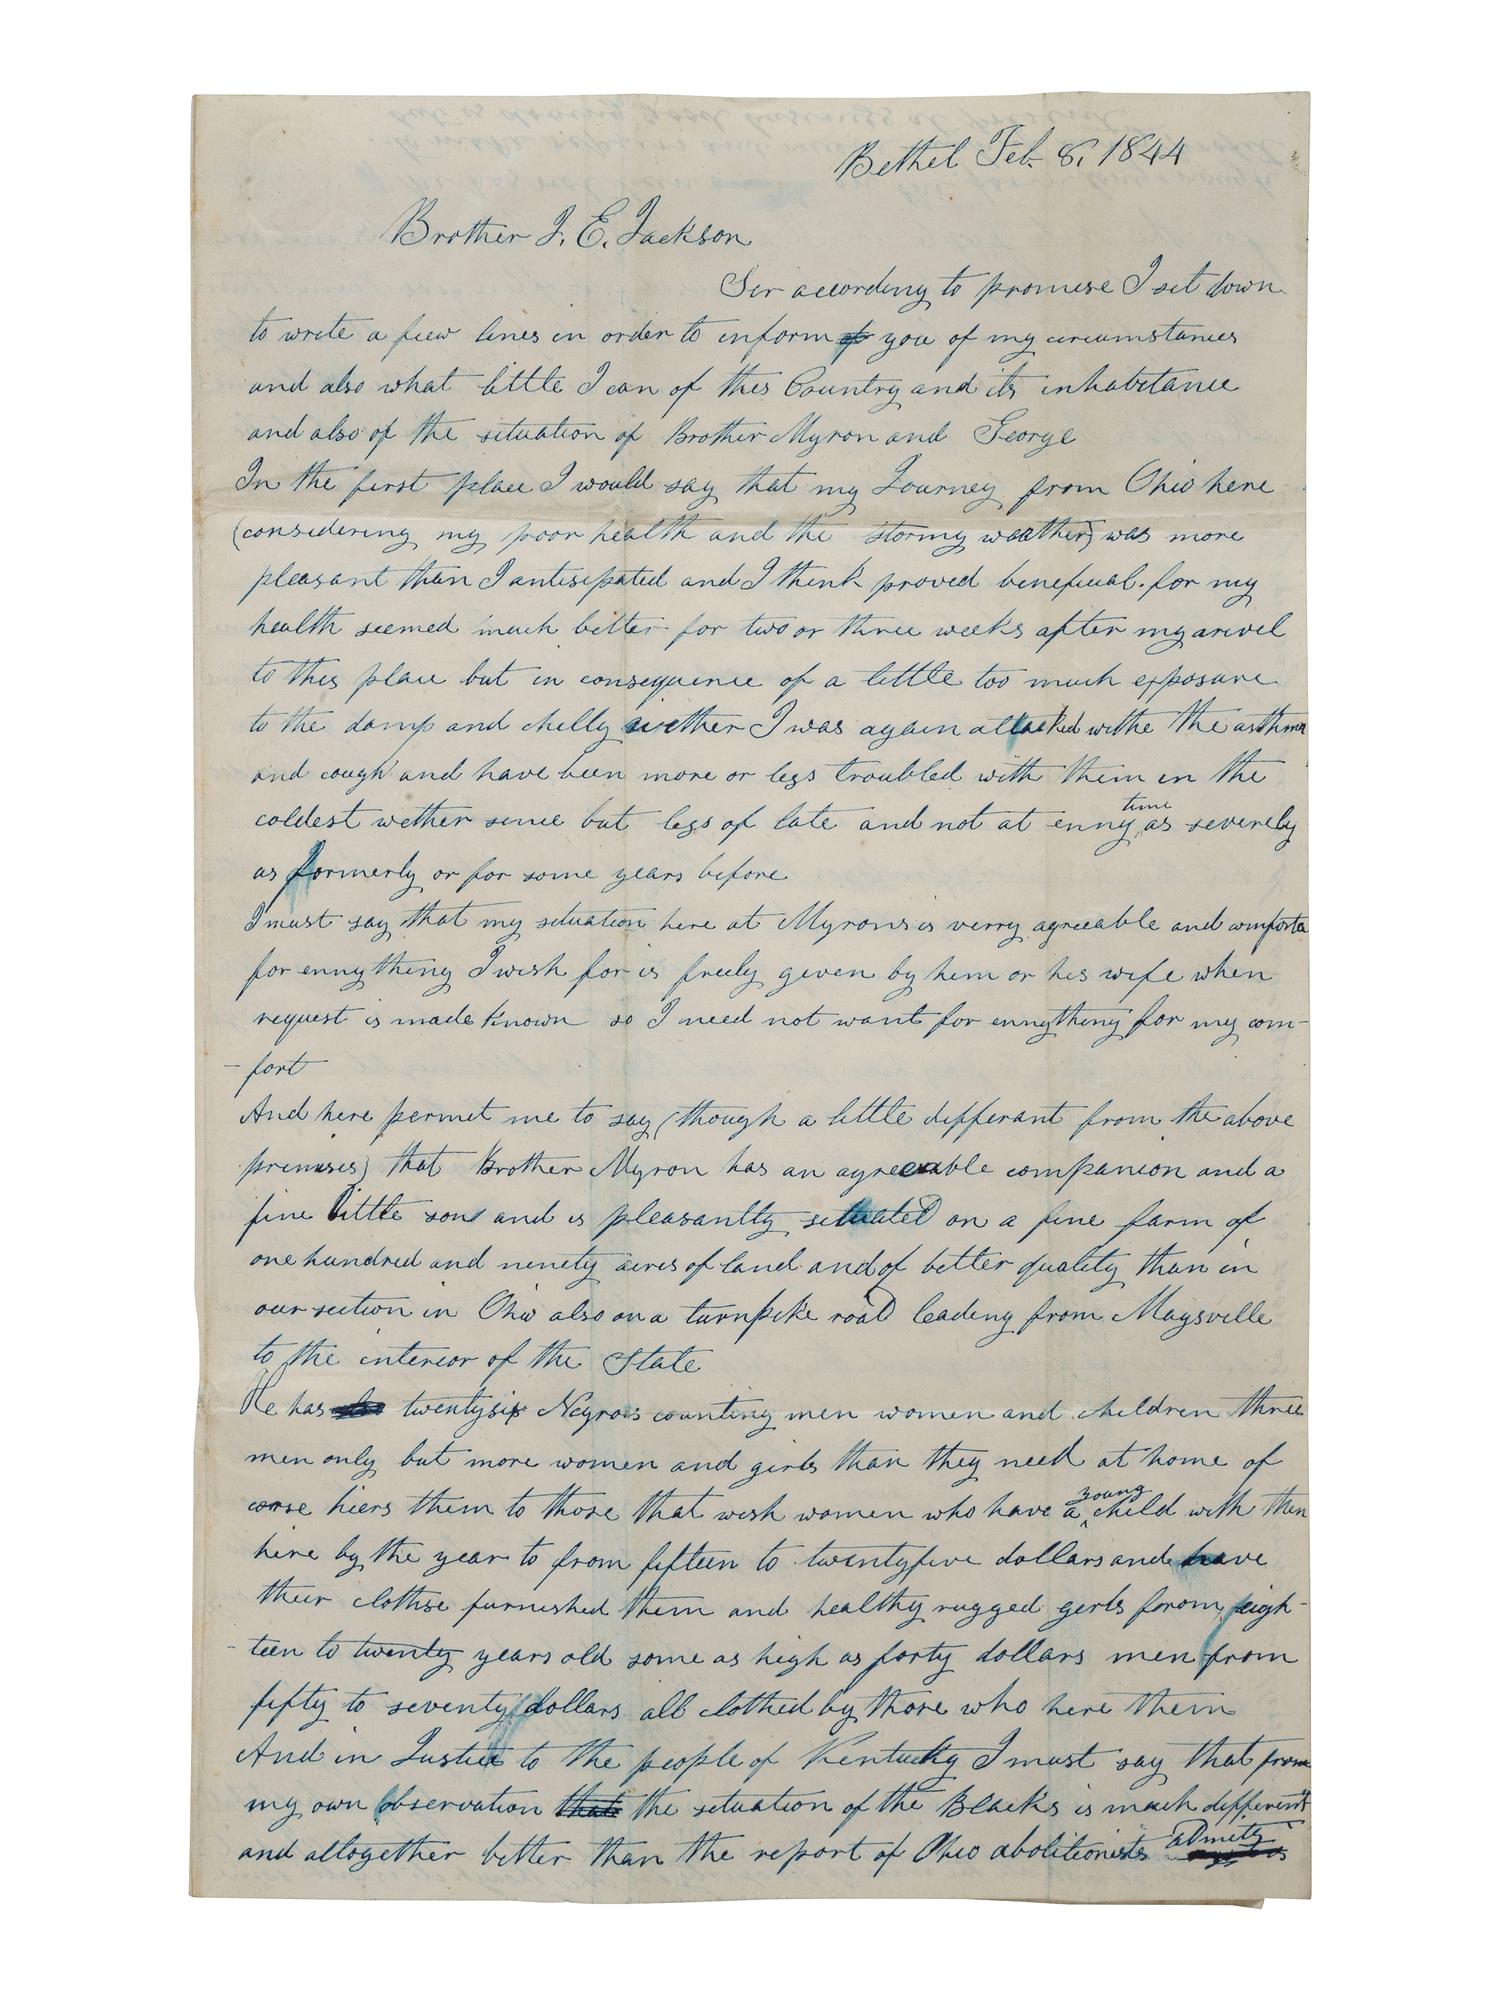 Bethel Feb. 8, 1844
Brother J. E. Jackson
Ser according to promise I set down
to write a fiew lines in order to inform you of my circumstances
and also what little I can of this Country and its inhabitance
and also of the situation of Brother Myron and George
In the first place I would say that my Journey from Ohio here
(considering my poor health and the stormy weather) was more
pleasant than I antisipated and I think proved beneficial. for my
health seemed much better for two or three weeks after my arivel
to this place but in consequence of a little too much exposure
to the damp and chilly wether I was again attacked withe the asthma
and cough and have been more or less troubled with them in the
coldest wether since but less of late and not at enny time as severely
as formerly or for some years before
I must say that my situation here at Myrons is verry agreeable and comforta
for ennything I wish for is freely given by him or his wife when
request is made known so I need not want for ennything for my com-
-fort
And here permit me to say (though a little differant from the above
premises) that Brother Myron has an agreeable companion and a
fine little son and is pleasantly situated on a fine farm of
one hundred and ninety acres of land and of better quality than in
our section in Ohio also on a turnpike road leading from Maysville
to the interior of the State
He has twentysix Negroes counting men women and children three
men only but more women and girls than they need at home of
corse hiers them to those that wish women who have a young child with them
hire by the year to from fifteen to twentyfive dollars and have
their clothise furnished them and healthy rugged girls forom eigh-
-teen to twenty years old some as high as forty dollars men from
fifty to seventy dollars all clothed by those who here them
And in Justice to the people of Kentucky I must say that from
my own observation that the situation of the Blacks is much different
and altogether better than the report of Ohio abolitionists admits